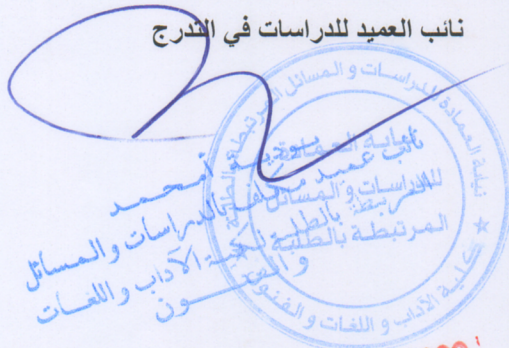 نائب العميد للدراسات في التدرج
نيابة العمادة للدراسات و المسائل المرتبطة بالطلبة
كلية الآداب و اللغات و الفنون
نيابة العمادة
للدراسات و المسائل
المرتبطة بالطلبة
أمحمد
نائب عميد مكلف بالدراسات و المسائل
المرتبطة بالطلبة
الآداب و اللغات
و الفنون